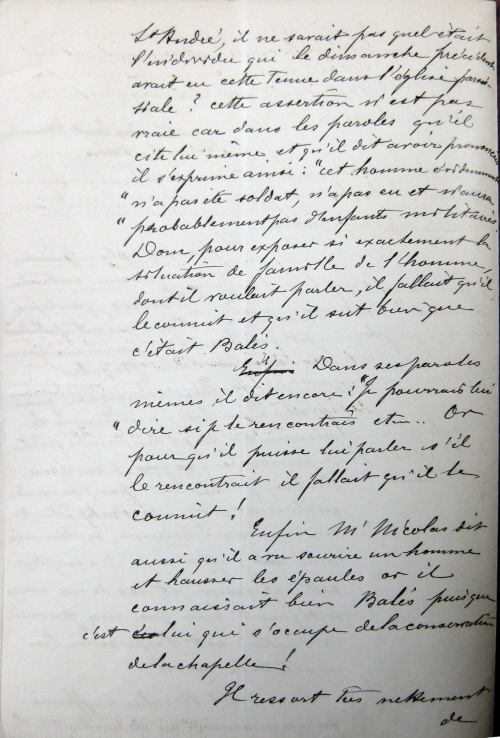 St André, il ne savait pas quel était
l'individu qui le dimanche précédent
avait eu cette tenue dans l'église parois-
siale? cette assertion n'est pas
vraie car dans les paroles qu'il
cite lui même et qu'il dit avoir prononcé
il s'exprime ainsi: "cet homme évidemment
"n'a pas été soldat, n'a pas eu et n'aura
"probablement pas d'enfants militaires.
Donc, pour exposer si exactement la
situation de famille de l'homme,
dont il voulait parler, il fallait qu'il
le connût et qu'il sût bien que
c'était Balès.
Enfin Dans ses paroles
mêmes, il dit encore: "Je pourrais lui
"dire si je le rencontrais etc... Or
pour qu'il puisse lui parler s'il
le rencontrait il fallait qu'il le
connût!
Enfin Mr Nicolas dit
aussi qu'il a vu sourire un homme
et hausser les épaules or il
connaissait bien Balès puisque
c'est lui qui s'occupe de la conservation
de la chapelle!
Il ressort très nettement
de